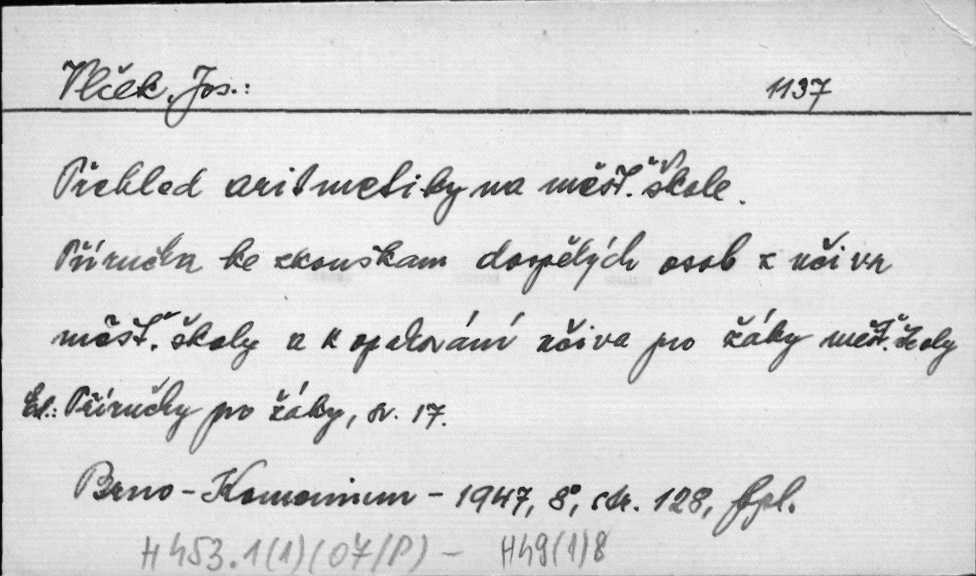 Vlček, Jos.: 1137
Přehled aritmetiky na měšť. škole.
Příručka ke zkouškam dospělých osob z učiva
měšť. školy a k opakování učiva pro žáky měšť. školy
Ed.: Příručky pro žáky, sv. 17.
Brno - Komenium - 1947, 8°, str. 128, fpl.
H 453.1(1)(07/P) - H49(1)8